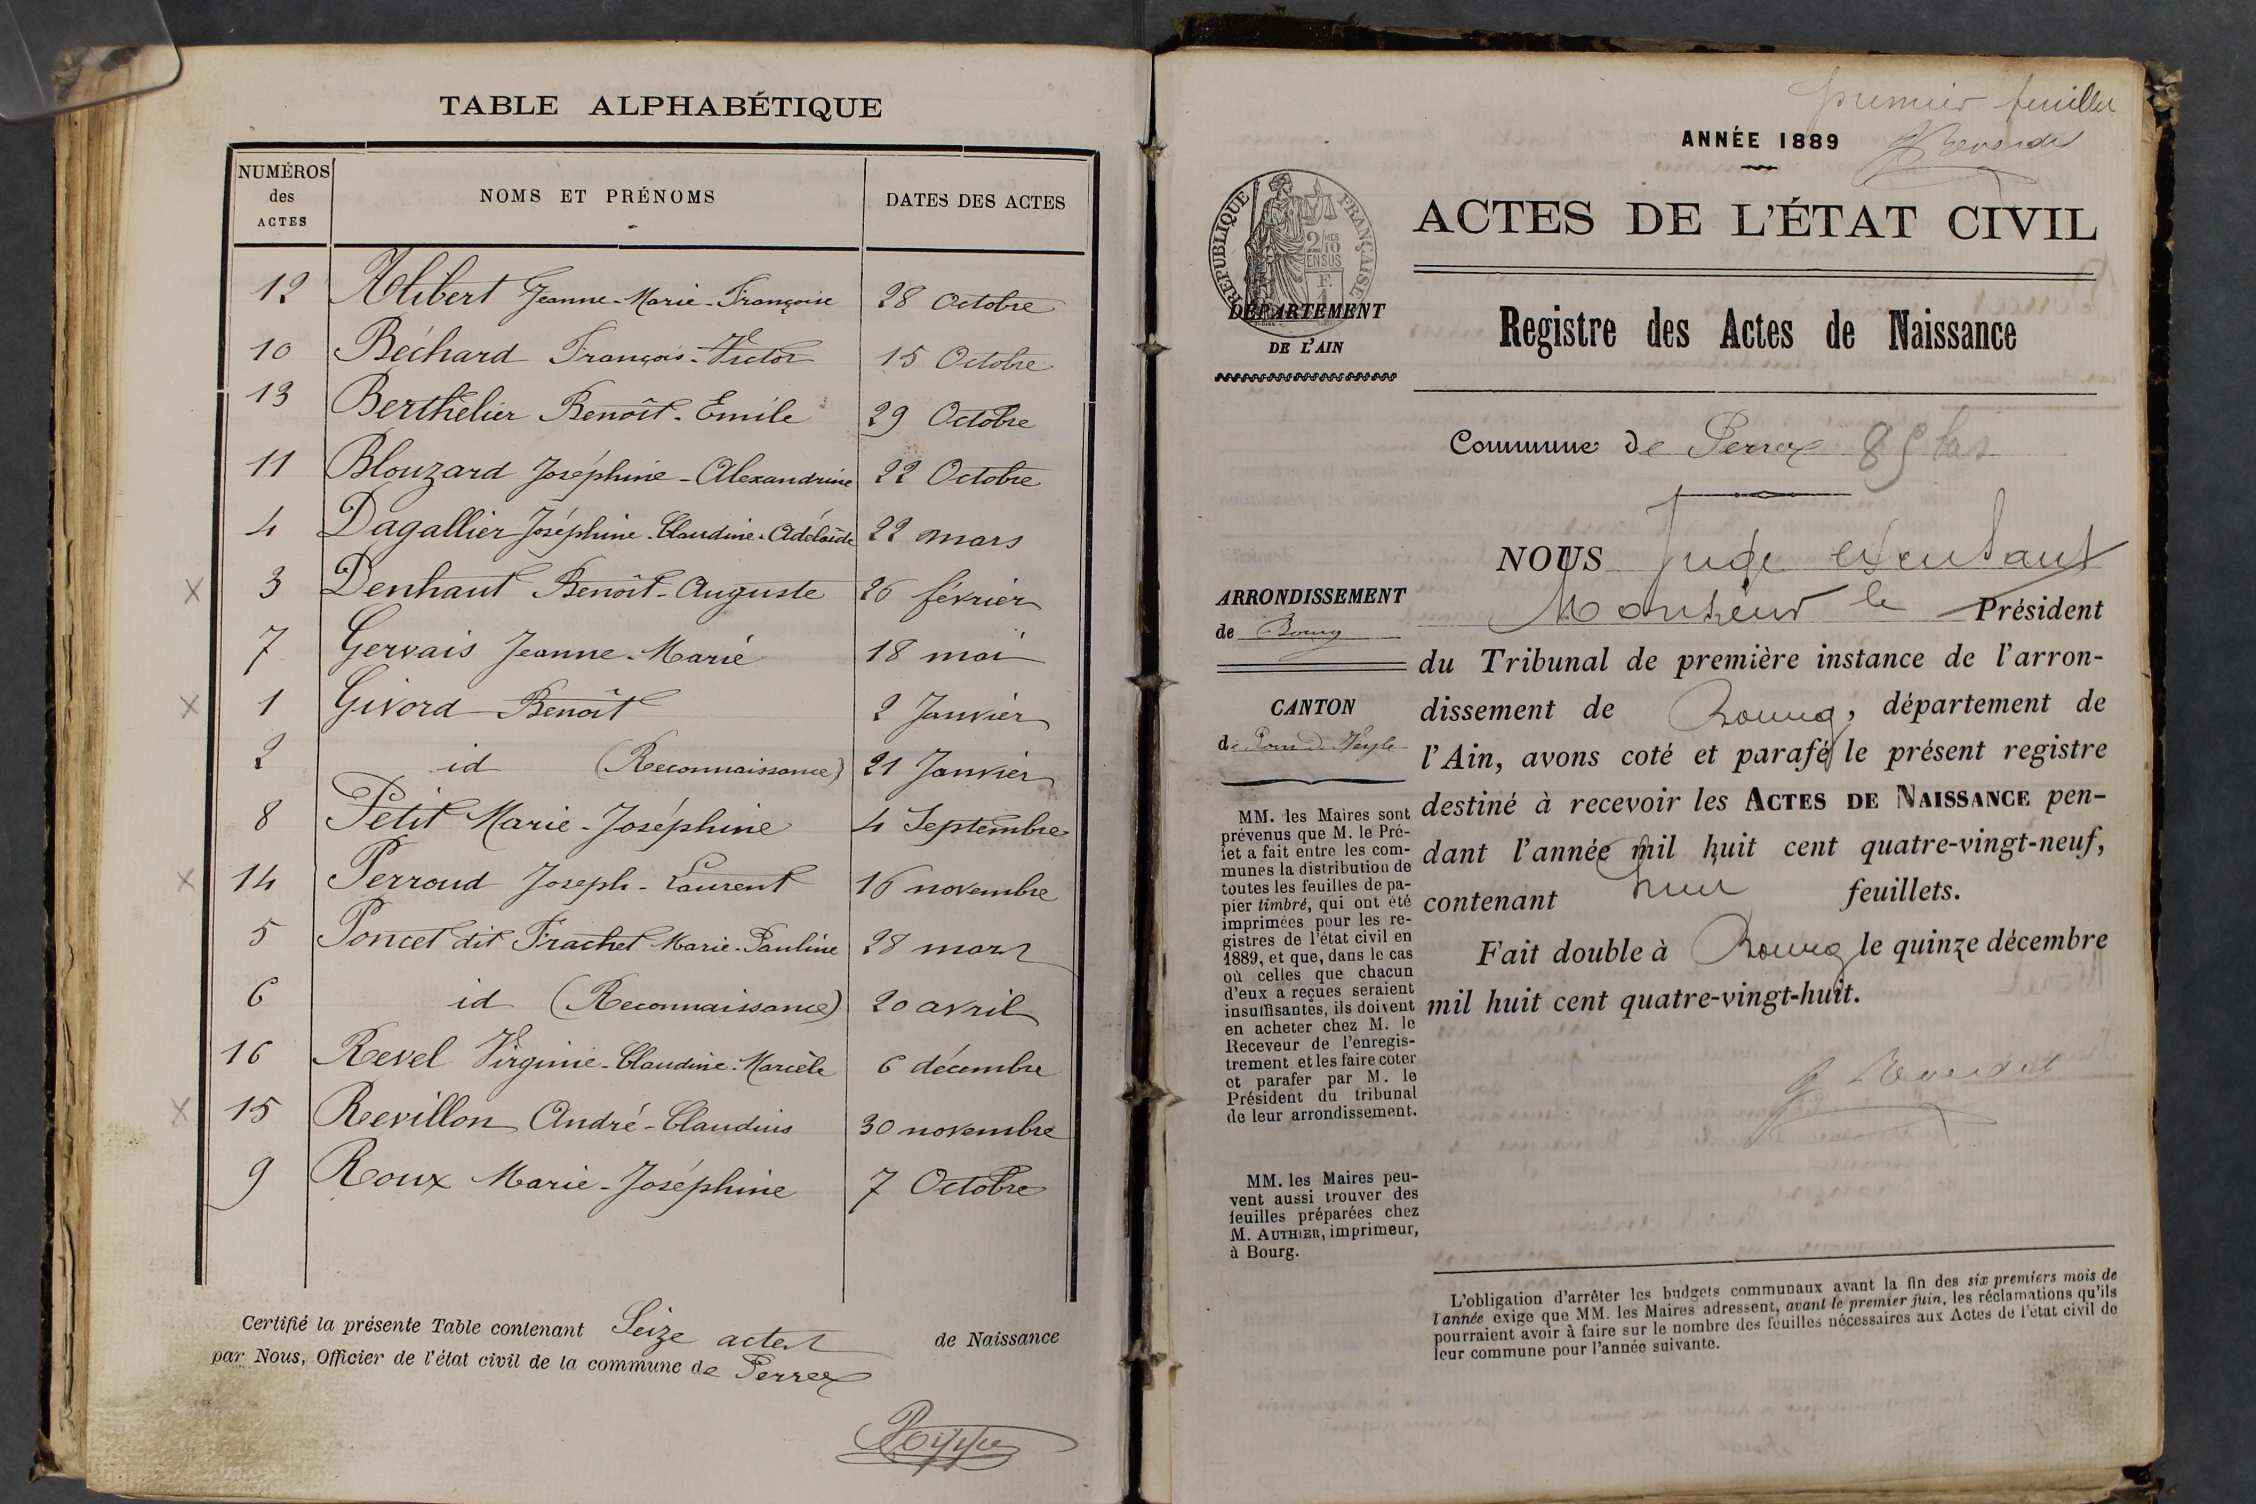 TABLE ALPHABÉTIQUE
NUMÉROS
des
ACTES
NOMS ET PRÉNOMS
DATES DES ACTES
12 Alibert Jeanne-Marie-Françoise 28 Octobre
10 Béchard François-Victor 15 Octobre
13 Berthelier Benoît-Emile 29 Octobre
11 Blouzard Joséphine-Alexandrine 22 Octobre
4 Dagallier Joséphine-Claudine-Adélaïde 22 mars
X 3 Denhaut Benoît-Auguste 26 février
7 Gervais Jeanne-Marie 18 mai
X 1 Givord Benoît 2 Janvier
2 id (Reconnaissance) 21 Janvier
8 Petit Marie-Joséphine 4 Septembre
X 14 Perroud Joseph-Laurent 16 novembre
5 Poncet dit Frachet Marie-Pauline 28 mars
6 id (Reconnaissance) 20 avril
16 Revel Virginie-Claudine-Marcèle 6 décembre
X 15 Revillon André-Claudius 30 novembre
9 Roux Marie-Joséphine 7 Octobre
Certifié la présente Table contenant Seize actes de Naissance
par Nous, Officier de l'état civil de la commune de Perrex
premier feuillet
ANNÉE 1889
Reverdel
RÉPUBLIQUE FRANÇAISE
2 MES
10
EN SUS
F.
1
ACTES DE L'ÉTAT CIVIL
DÉPARTEMENT
DE L'AIN
Registre des Actes de Naissance
Commune de Perrex
NOUS Juge
Monsieur le Président
du Tribunal de première instance de l'arron-
dissement de Bourg, département de
l'Ain, avons coté et parafé le présent registre
destiné à recevoir les ACTES DE NAISSANCE pen-
dant l'année mil huit cent quatre-vingt-neuf,
contenant feuillets.
Fait double à Bourg le quinze décembre
mil huit cent quatre-vingt-huit.
Reverdel
ARRONDISSEMENT
de Bourg
CANTON
de Pont de Veyle
MM. les Maires sont
prévenus que M. le Pré-
fet a fait entre les com-
munes la distribution de
toutes les feuilles de pa-
pier timbré, qui ont été
imprimées pour les re-
gistres de l'état civil en
1889, et que, dans le cas
où celles que chacun
d'eux a reçues seraient
insuffisantes, ils doivent
en acheter chez M. le
Receveur de l'enregis-
trement et les faire coter
et parafer par M. le
Président du tribunal
de leur arrondissement.
MM. les Maires peu-
vent aussi trouver des
feuilles préparées chez
M. AUTHIER, imprimeur,
à Bourg.
L'obligation d'arrêter les budgets communaux avant la fin des six premiers mois de
l'année exige que MM. les Maires adressent, avant le premier juin, les réclamations qu'ils
pourraient avoir à faire sur le nombre des feuilles nécessaires aux Actes de l'état civil de
leur commune pour l'année suivante.